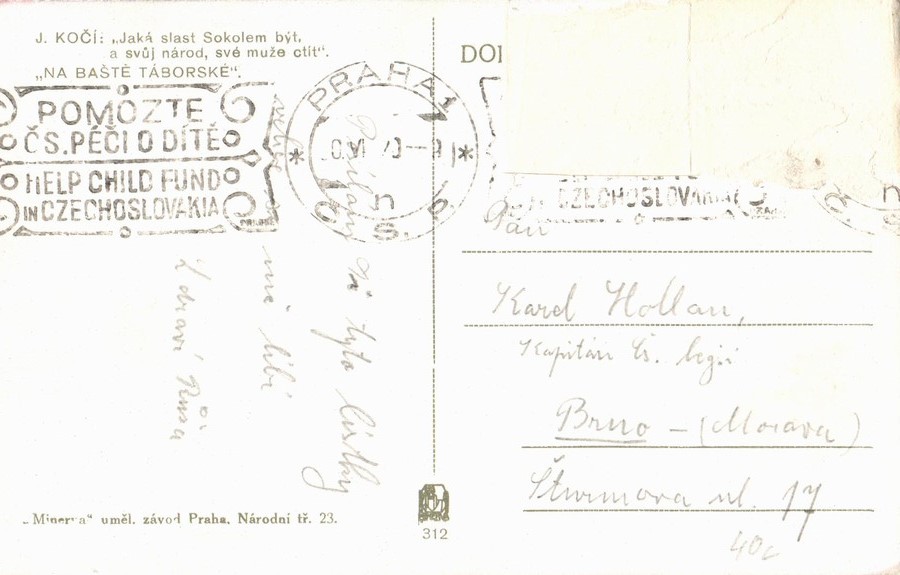 J. KOČÍ: „Jaká slast Sokolem být,
a svůj národ, své muže ctít“.
„NA BAŠTĚ TÁBORSKÉ“.
POMOZTE
ČS. PÉČI O DÍTĚ
HELP CHILD FUND
IN CZECHOSLOVAKIA
PRAHA 1
Č. S. P.
Posílám Ti tyto lístky
mě líbí
Zdraví Růša
„Minerva“ uměl. závod Praha, Národní tř. 23.
312
DOP
CZECHOSLOVAKIA
Pan
Karel Hollan,
Kapitán čs. legií
Brno – (Morava)
Šturmova ul. 17
40c